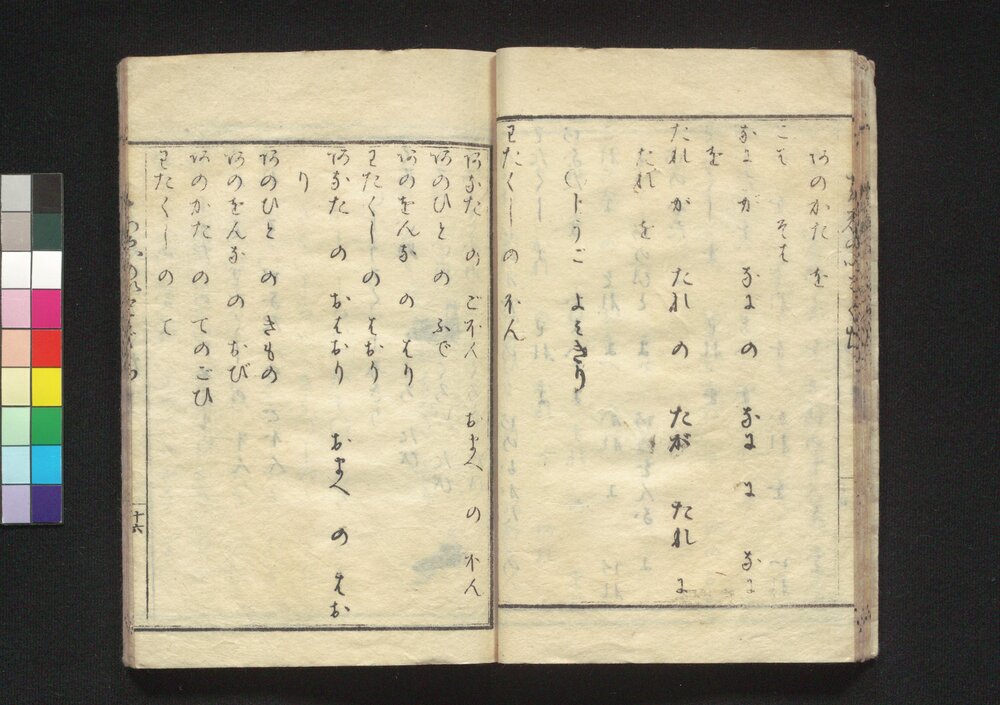 あのかた を
こは そは
なにが なにの なにに なに
を
たれが たれの たが たれに
たれを
〇じうご よみきり
わたくし の ほん
あなた の ごほん おまへ の ほん
あのひと の ふで
あのをんな の はり
わたくし の はおり
あなた の おはおり おまへ の はお
り
あのひと の きもの
あのをんなの おび
あのかた の てのごひ
わたくしの て
十六